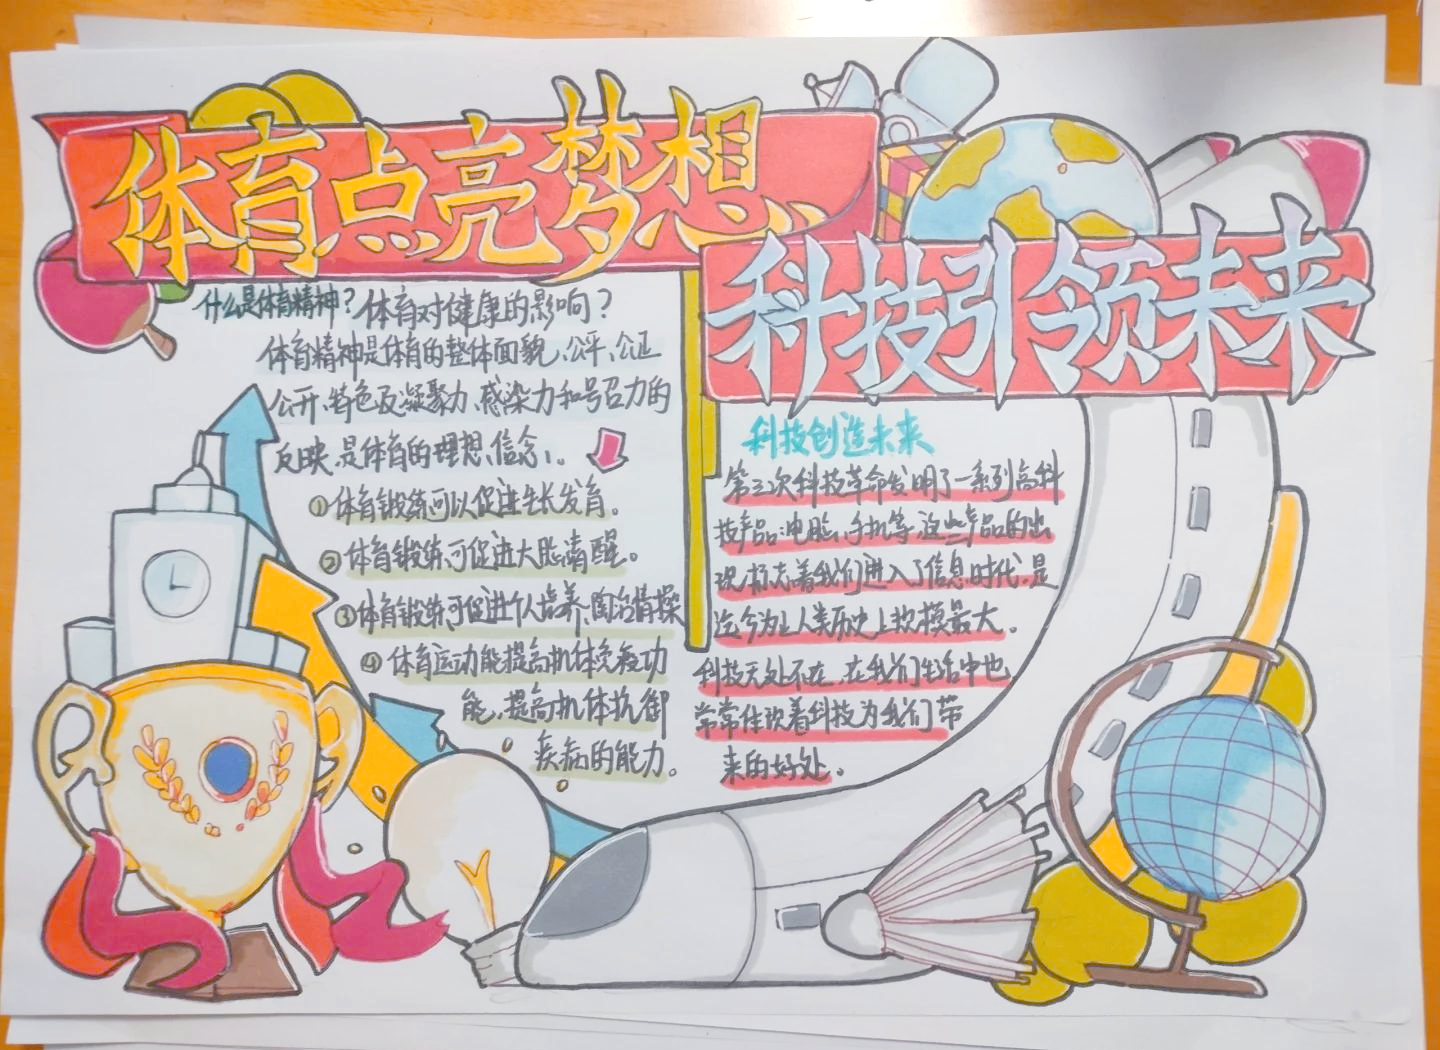 体育点亮梦想
科技引领未来
什么是体育精神？体育对健康的影响？
体育精神是体育的整体面貌、公平、公正
公开、特色及凝聚力、感染力和号召力的
反映,是体育的理想、信念、。
①体育锻练可以促进生长发育。
②体育锻练可促进大脑清醒。
③体育锻练可促进个人培养、陶冶情操
④体育运动能提高机体免疫功
能,提高机体抗御
疾病的能力。
科技创造未来
第三次科技革命发明了一系列高科
技产品:电脑、手机等,这些产品的出
现,标志着我们进入了信息时代,是
迄今为止人类历史上规模最大。
科技无处不在,在我们生活中也
常常伴随着科技为我们带
来的好处。